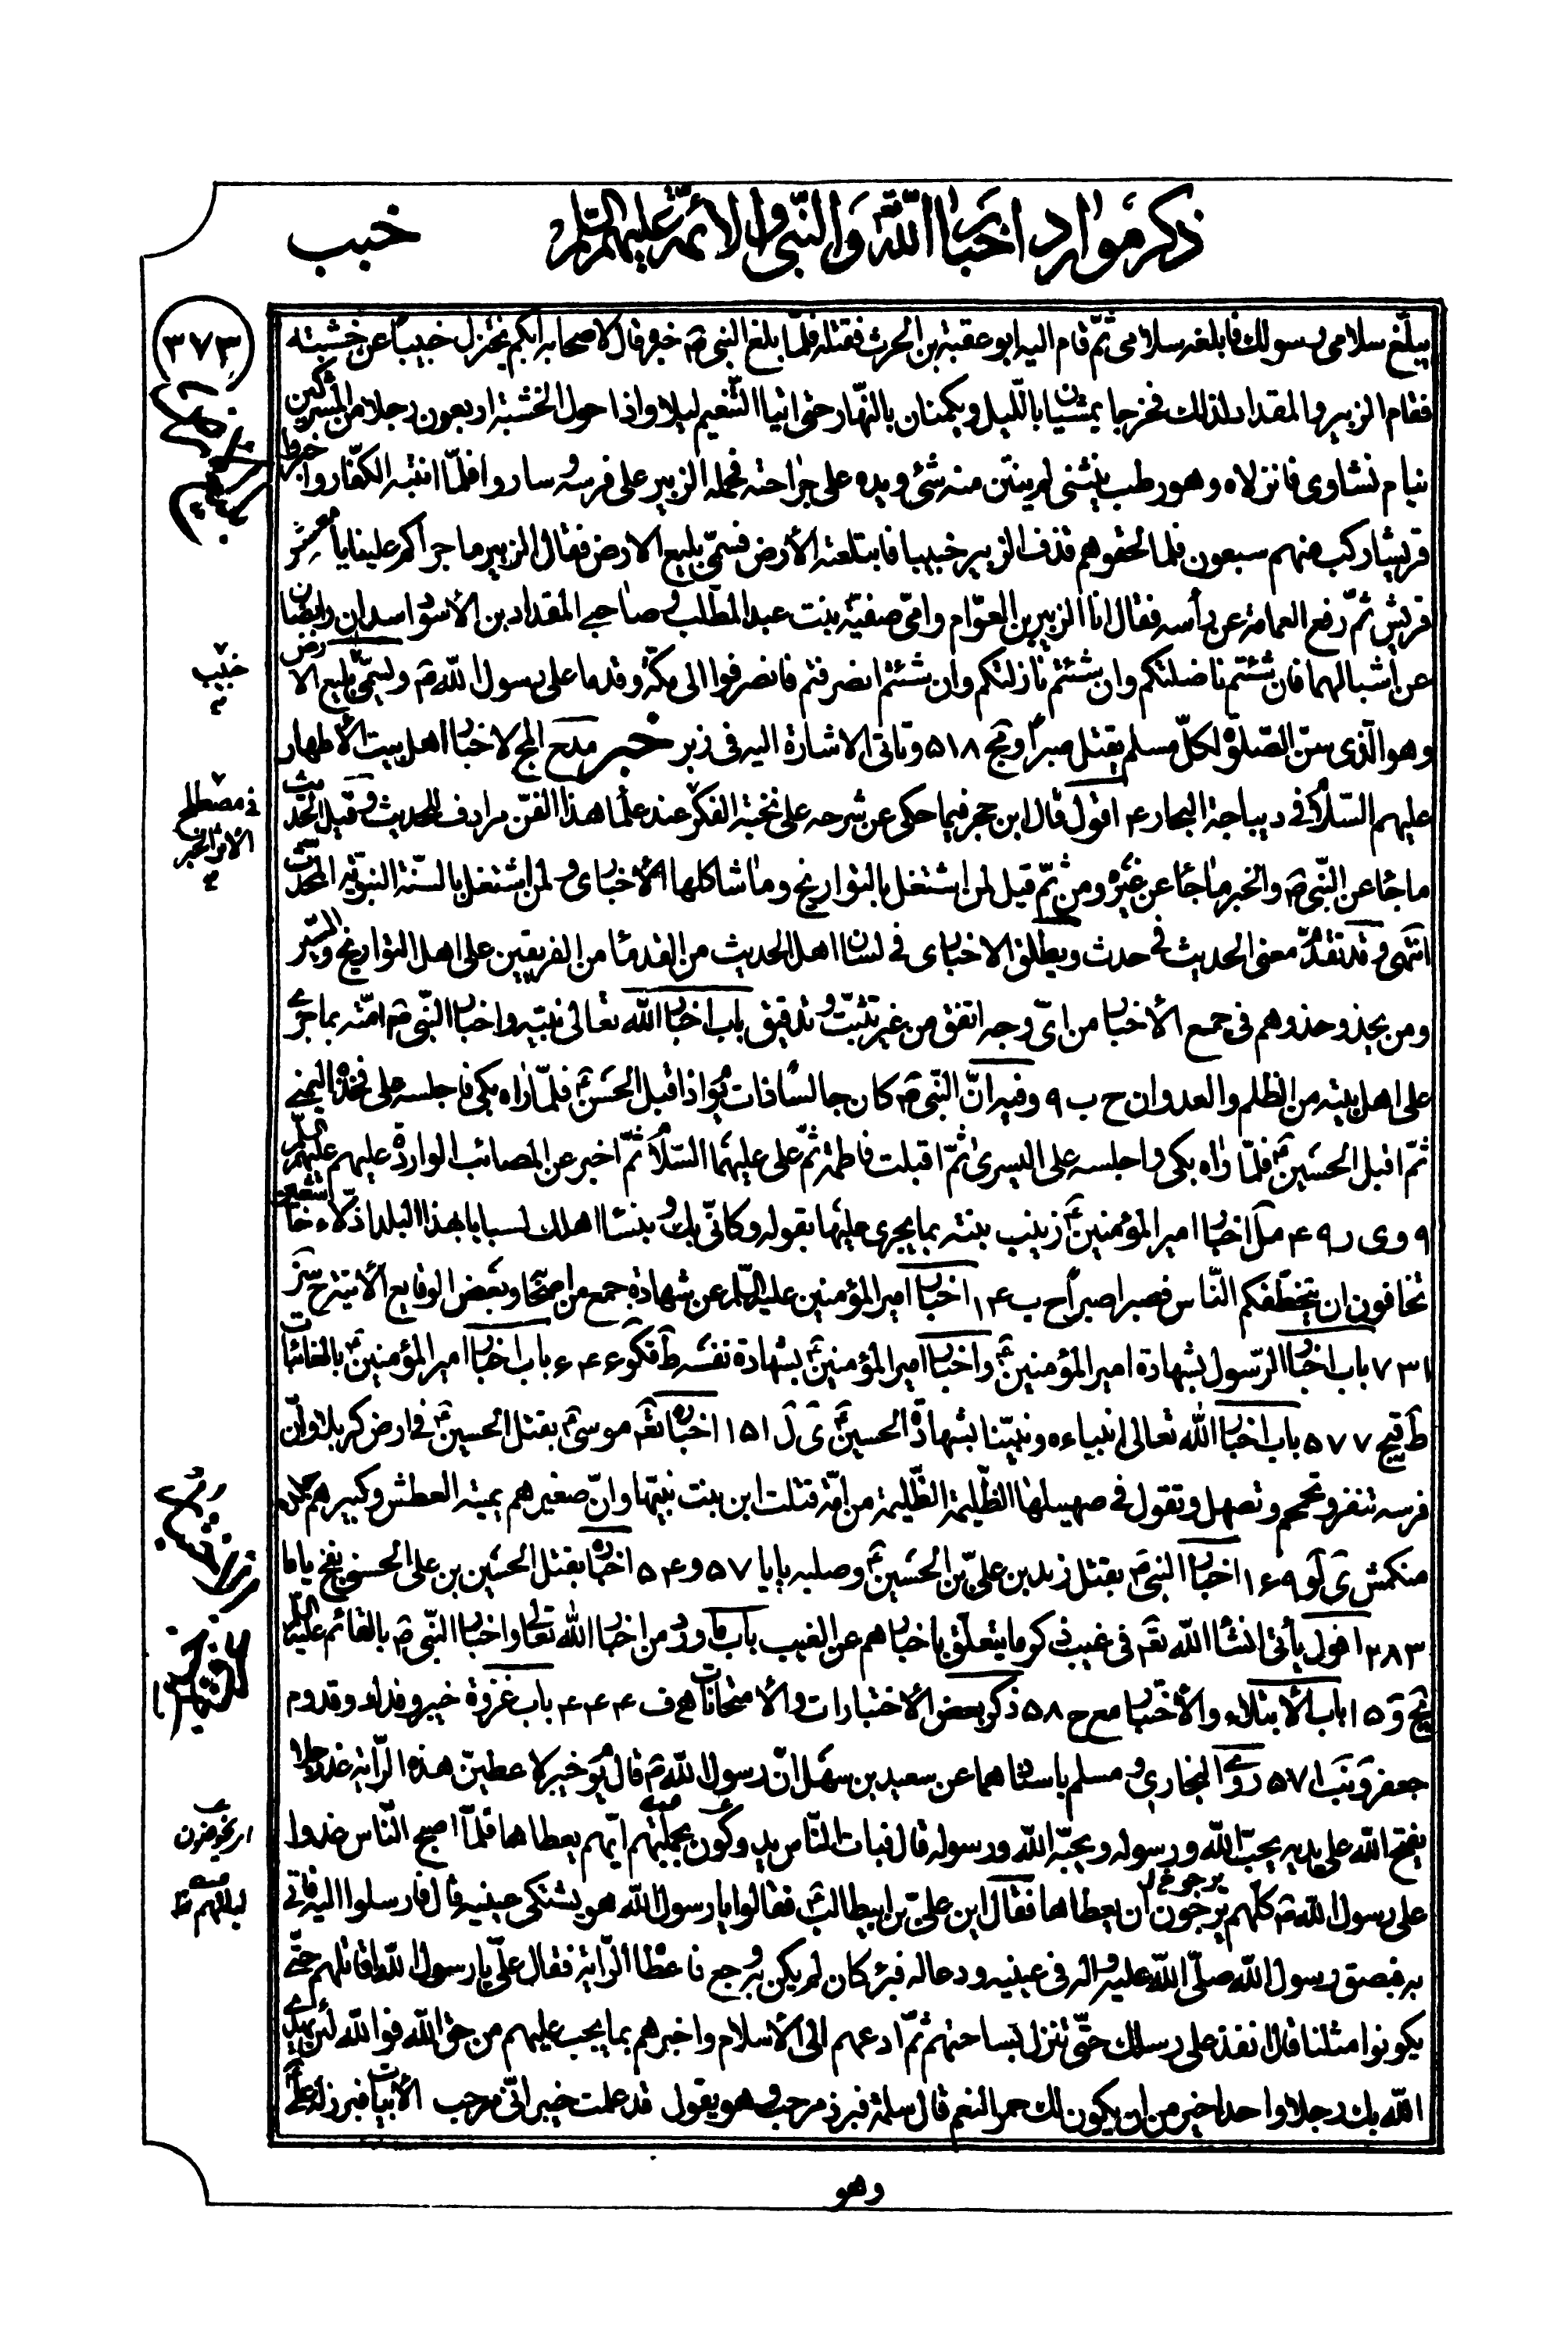 ذكر موارد اخبار الله والنبي والأئمة عليهم السلام
خبب
٣٧٣
يبلّغ سلامي رسولك فابلغه سلامي ثمّ قام اليه ابو عقبة بن الحرث فقتله فلمّا بلغ النبي ص خبره قال لاصحابه ايكم يختزل خبيبا عن خشبته
فقام الزبير والمقداد لذلك فخرجا يمشيان بالليل ويكمنان بالنهار حتى اتيا التنعيم ليلا واذا حول الخشبة اربعون رجلا من المشركين
نيام نشاوى فانزلاه وهو رطب ينثنى لم ينتن منه شئ ويده على جراحته فحمله الزبير على فرسه وساروا فلمّا انتبه الكفّار واخبروا
قريشا ركب منهم سبعون فلما لحقوهم قذف الزبير خبيبا فابتلعته الأرض فسمّي بليع الارض فقال الزبير ما جراكم علينا يا معشر
قريش ثمّ رفع العمامة عن رأسه فقال انا الزبير بن العوّام وامّي صفيّة بنت عبد المطّلب وصاحبي المقداد بن الأسود اسدان رابضان
عن اشبالهما فان شئتم ناضلتكم وان شئتم نازلتكم وان شئتم انصرفتم فانصرفوا الى مكّة وقدما على رسول الله ص ويسمّى بليع الارض
خبيب
وهو الّذي سنّ الصّلوة لكلّ مسلم يقتل صبراً و مج ٥١٨ وتاتي الاشارة اليه في زبر خبر مدح المج لاخبار اهل بيت الأطهار
عليهم السّلام في ديباجة البحار ٤ اقول قال ابن حجر فيما حكى عن شرحه على نخبة الفكر الخبر عند علما هذا الفنّ مرادف للحديث وقيل الحديث
في مصطلح الاثر الخبر
ما جاء عن النّبي ص والخبر ما جاء عن غيره ومن ثمّ قيل لمن اشتغل بالتواريخ وما شاكلها الأخباري ولمن اشتغل بالسنّة النبويّة المحدّث
انتهى وقد تقدّم معنى الحديث في حدث ويطلق الاخباري في لسان اهل الحديث من القدما من الفريقين على اهل التواريخ والسّير
ومن يحذو حذوهم في جمع الأخبار من ايّ وجه اتفق من غير تثبّت وتدقيق باب اخبار الله تعالى نبيّه واخبار النّبي ص امّته بما جرى
على اهل بيته من الظلم والعدوان ح ب ٩ وفيه انّ النّبي ص كان جالساً ذات يوم اذ اقبل الحسن ع فلمّا راه بكى فاجلسه على فخذه اليمنى
ثمّ اقبل الحسين ع فلمّا راه بكى واجلسه على اليسرى ثمّ اقبلت فاطمة ثمّ علي عليهما السّلام ثمّ اخبر عن المصائب الواردة عليهم عليهم السلم
٩ وى ر ٤٩ مل اخبار امير المؤمنين ع زينب بنته بما يجري عليها بقوله وكانّي بك وبنساء اهلك لسبايا بهذا البلد اذلّاء خاشعين
تخافون ان يتخطّفكم النّاس فصبرا صبراً ح ب ١٤ اخبار امير المؤمنين عليه السّلم عن شهادة جمع من اصحابه وبعض الوقايع الآتية ح سز
٧٣١ باب اخبار الرّسول بشهادة امير المؤمنين ع واخبار امير المؤمنين ع بشهادة نفسه ط قكو ٦٤٦ باب اخبار امير المؤمنين ع بالغائبات
ط قيج ٥٧٧ باب اخبار الله تعالى انبياءه ونبيّنا بشهادة الحسين ع ى ل ١٥١ اخباره تعه موسى ع بقتل الحسين ع في ارض كربلا وانّ
فرسه تنفر وتحمحم وتصهل وتقول في صهيلها الظّليمة الظّليمة من امّة قتلت ابن بنت نبيّها وانّ صغيرهم يميته العطش وكبيرهم جلده
منكمش ى لو ١٦٩ اخبار النبي ص بقتل زيد بن عليّ بن الحسين ع وصلبه يا يا ٥٧ و ٥٤ اخباره بقتل الحسين بن علي الحسني بفخ يا ما
٢٨٣ اقول يأتي انشاء الله تعه في غيب ذكر ما يتعلّق باخبارهم عن الغيب باب ما ورد من اخبار الله تعالى واخبار النّبي ص بالقائم عليه السلم
يج و ١٥ باب الأبتلاء والأختبار مع ح ٥٨ ذكر بعض الأختبارات والأمتحانات هـ ف ٤٤٤ باب غزوة خيبر وفدك وقدوم
جعفر و نب ٥٧١ روى البخاري ومسلم باسنادهما عن سعيد بن سهل انّ رسول الله ص قال يوم خيبر لاعطينّ هذه الرّاية غدا رجلا
يفتح الله على يديه يحبّ الله ورسوله ويحبّه الله ورسوله قال فبات النّاس يدوكون بجملتهم ايّهم يعطاها فلمّا اصبح النّاس غدوا
اي يخوضون
على رسول الله ص كلّهم يرجون ان يعطاها فقال اين عليّ بن ابيطالب ع فقالوا يا رسول الله هو يشتكي عينيه قال فارسلوا اليه فاتي
يرجو خ ل
ليلتهم
به فبصق رسول الله صلّى الله عليه واله في عينيه ودعا له فبرئ كان لم يكن به وجع فاعطاه الرّاية فقال عليّ يا رسول الله اقاتلهم حتّى
يكونوا مثلنا قال انفذ على رسلك حتّى تنزل بساحتهم ثمّ ادعهم الى الأسلام واخبرهم بما يجب عليهم من حق الله فوالله لئن يهدي
الله بك رجلا واحدا خير من ان يكون لك حمر النعم قال سلمة فبرز مرحب وهو يقول قد علمت خيبر انّي مرحب الأبيات فبرز له علي
وهو